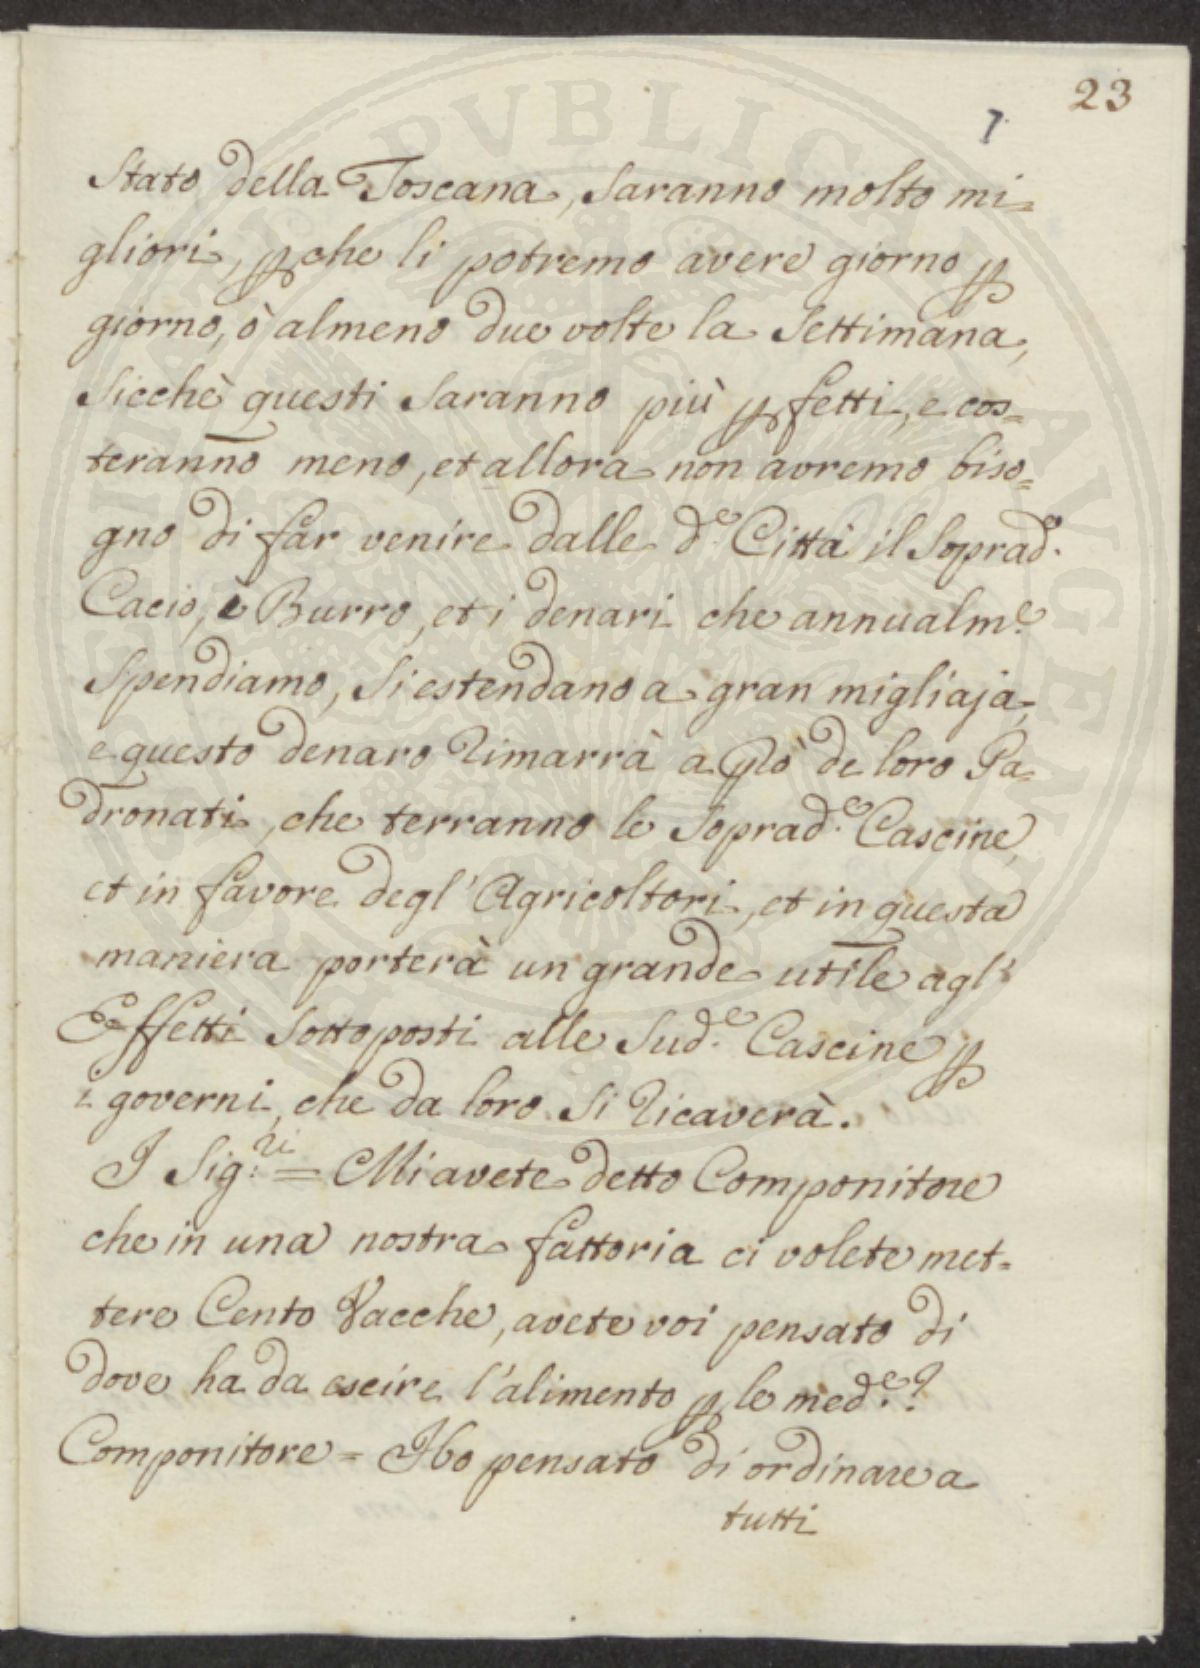 23
7
Stato della Toscana, Saranno molto mi=
gliori, ꝑche li potremo avere giorno ꝑ
giorno, ò almeno due volte la Settimana,
Sicchè questi Saranno più ꝑfetti, e cos=
teranno meno, et allora non avremo biso=
gno di far venire dalle d.e Città il Soprad.o
Cacio, e Burro, et i denari che annualm.e
Spendiamo, Si estendano a gran migliaja,
e questo denaro Rimarrà a ꝓò de loro Pa=
dronati, che terranno le Soprad.e Cascine,
et in favore degl' Agricoltori, et in questa
maniera porterà un grande utile agl'
Effetti Sottoposti alle Sud.e Cascine ꝑ
i governi, che da loro Si Ricaverà.
I Sig.ri = Mi avete detto Componitore
che in una nostra fattoria ci volete met=
tere Cento Vacche, avete voi pensato di
dove ha da escire l'alimento ꝑ le med.e?
Componitore = Ho pensato di ordinare a
tutti